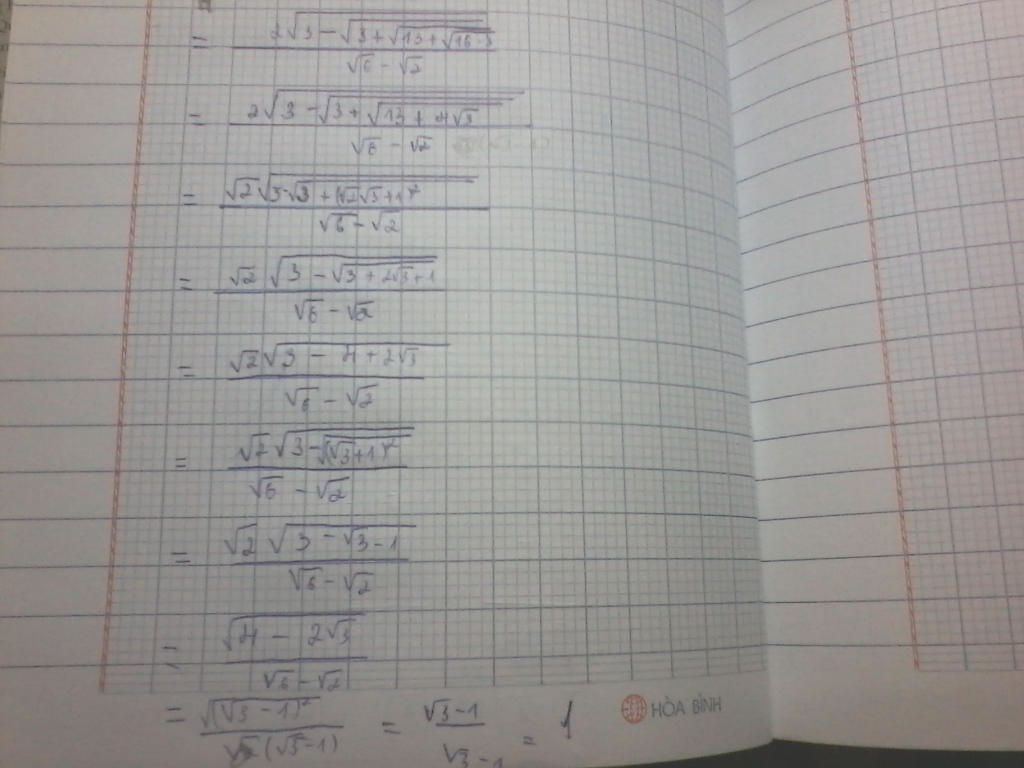 = \frac{2\sqrt{3-\sqrt{3+\sqrt{13+\sqrt{16·3}}}}}{\sqrt{6}-\sqrt{2}}
= \frac{2\sqrt{3-\sqrt{3+\sqrt{13+4\sqrt{3}}}}}{\sqrt{6}-\sqrt{2}}
= \frac{\sqrt{2}\sqrt{3-\sqrt{3}+(\sqrt{2}\sqrt{3}+1)^2}}{\sqrt{6}-\sqrt{2}}
= \frac{\sqrt{2}\sqrt{3-\sqrt{3+2\sqrt{3}+1}}}{\sqrt{6}-\sqrt{2}}
= \frac{\sqrt{2}\sqrt{3-4+2\sqrt{3}}}{\sqrt{6}-\sqrt{2}}
= \frac{\sqrt{2}\sqrt{3-\sqrt{(\sqrt{3}+1)^2}}}{\sqrt{6}-\sqrt{2}}
= \frac{\sqrt{2}\sqrt{3-\sqrt{3}-1}}{\sqrt{6}-\sqrt{2}}
= \frac{\sqrt{4-2\sqrt{3}}}{\sqrt{6}-\sqrt{2}}
= \frac{\sqrt{(\sqrt{3}-1)^2}}{\sqrt{2}(\sqrt{3}-1)} = \frac{\sqrt{3}-1}{\sqrt{3}-1} = 1
HÒA BÌNH